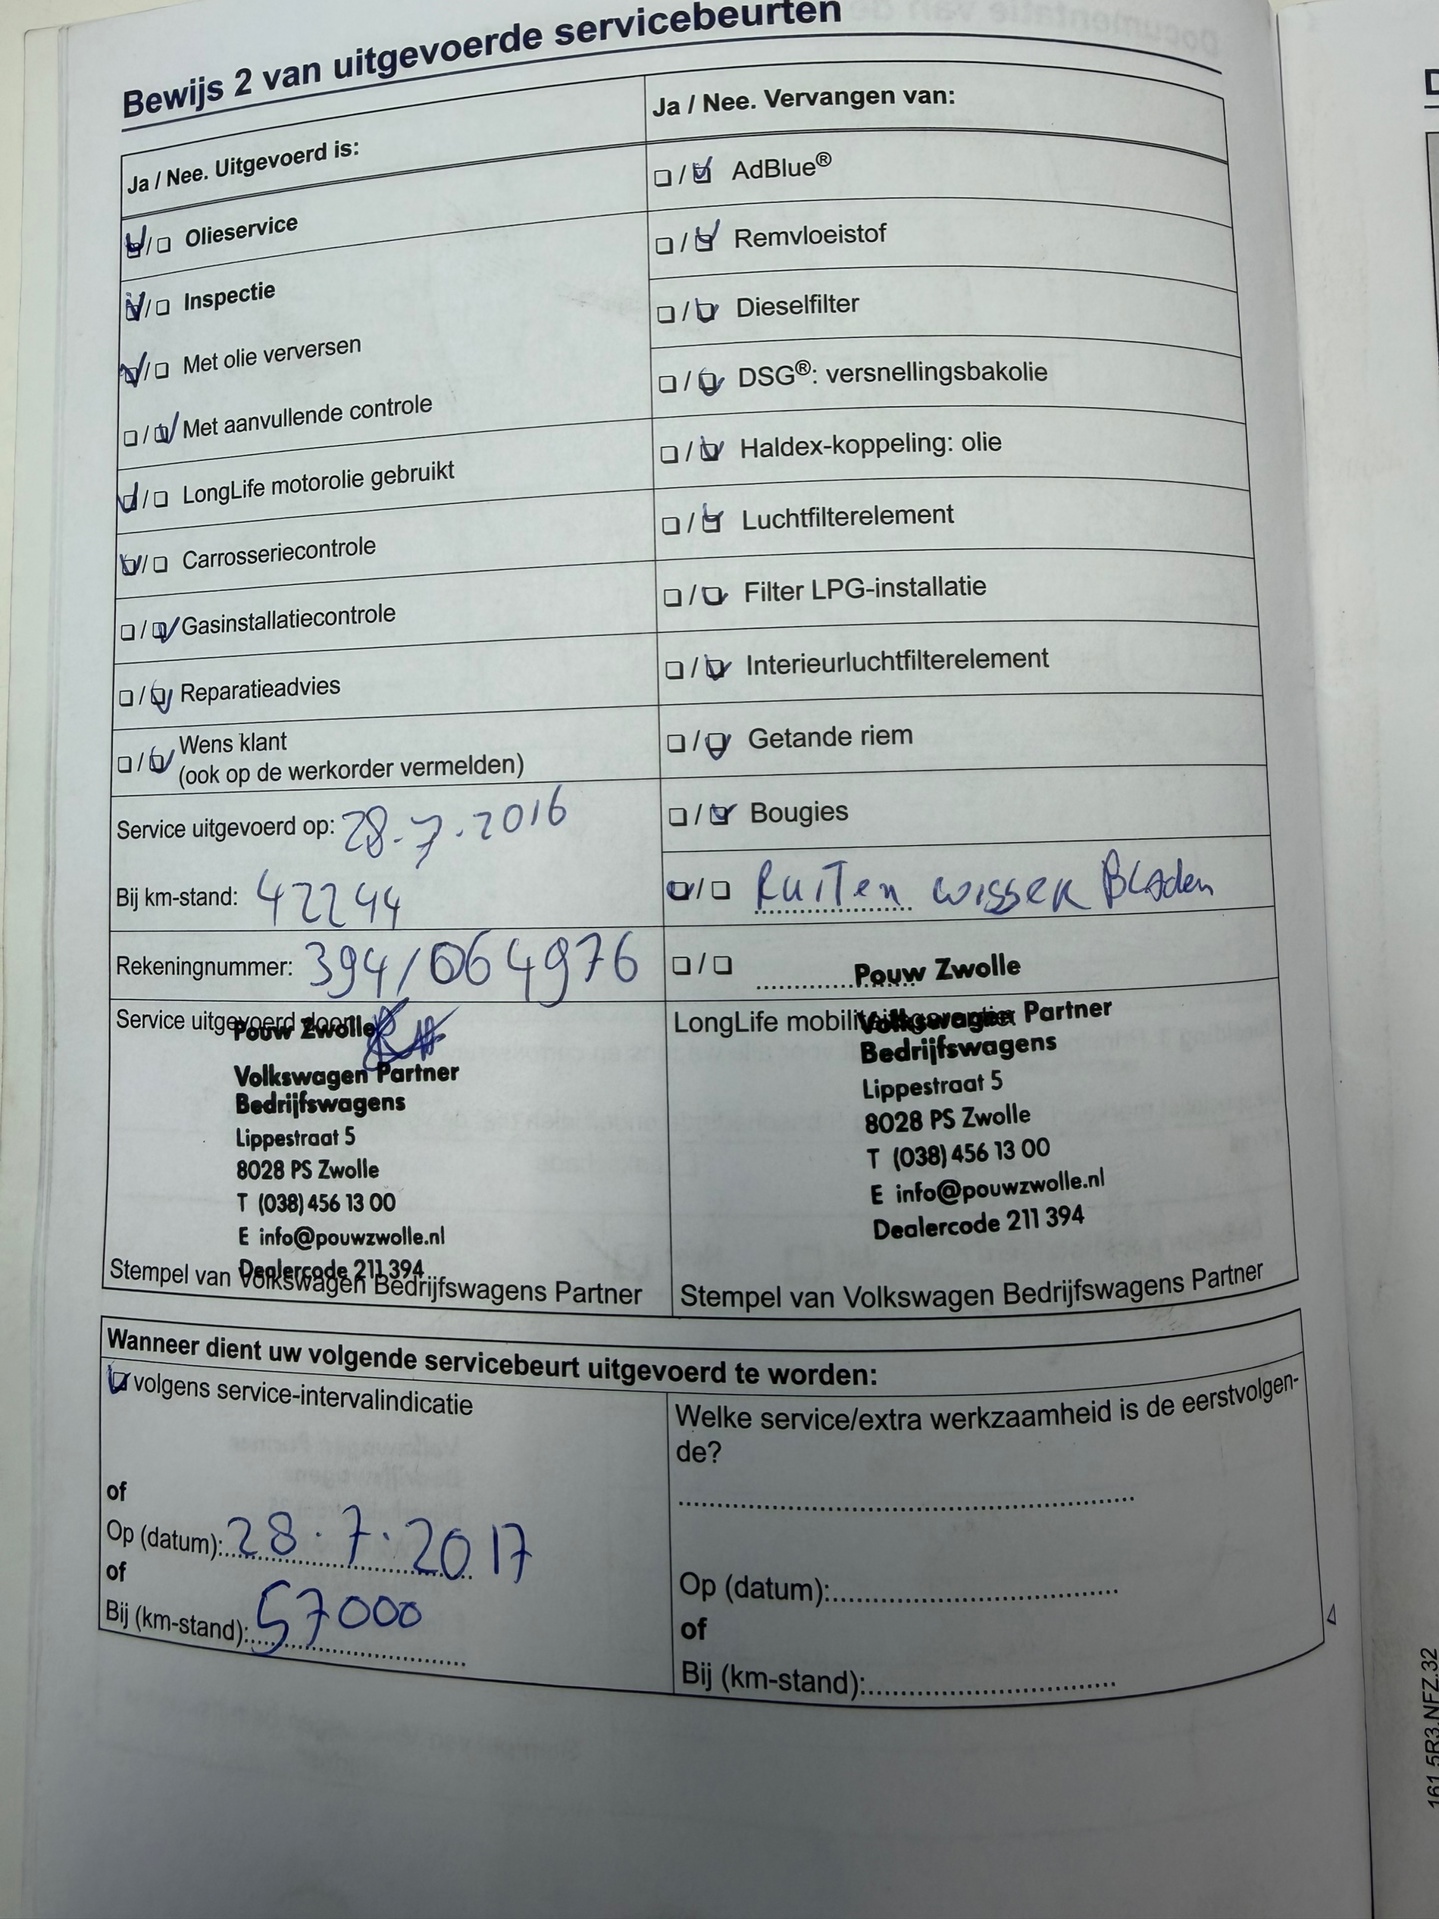 Bewijs 2 van uitgevoerde servicebeurten
Ja / Nee. Uitgevoerd is:
☑/☐ Olieservice
☑/☐ Inspectie
☑/☐ Met olie verversen
☐/☑ Met aanvullende controle
☑/☐ LongLife motorolie gebruikt
☑/☐ Carrosseriecontrole
☐/☑ Gasinstallatiecontrole
☐/☑ Reparatieadvies
☐/☑ Wens klant
(ook op de werkorder vermelden)
Service uitgevoerd op: 28.7.2016
Bij km-stand: 42244
Rekeningnummer: 394/064976
Service uitgevoerd door:
Pouw Zwolle
Volkswagen Partner
Bedrijfswagens
Lippestraat 5
8028 PS Zwolle
T (038) 456 13 00
E info@pouwzwolle.nl
Dealercode 211 394
Stempel van Volkswagen Bedrijfswagens Partner
Ja / Nee. Vervangen van:
☐/☑ AdBlue®
☐/☑ Remvloeistof
☐/☑ Dieselfilter
☐/☑ DSG®: versnellingsbakolie
☐/☑ Haldex-koppeling: olie
☐/☑ Luchtfilterelement
☐/☑ Filter LPG-installatie
☐/☑ Interieurluchtfilterelement
☐/☑ Getande riem
☐/☑ Bougies
☑/☐ Ruiten wisser Bladen
☐/☐
LongLife mobiliteitsgarantie:
Pouw Zwolle
Volkswagen Partner
Bedrijfswagens
Lippestraat 5
8028 PS Zwolle
T (038) 456 13 00
E info@pouwzwolle.nl
Dealercode 211 394
Stempel van Volkswagen Bedrijfswagens Partner
Wanneer dient uw volgende servicebeurt uitgevoerd te worden:
☑ volgens service-intervalindicatie
of
Op (datum): 28.7.2017
of
Bij (km-stand): 57000
Welke service/extra werkzaamheid is de eerstvolgen-
de?
Op (datum):
of
Bij (km-stand):
161.5R3.NFZ.32